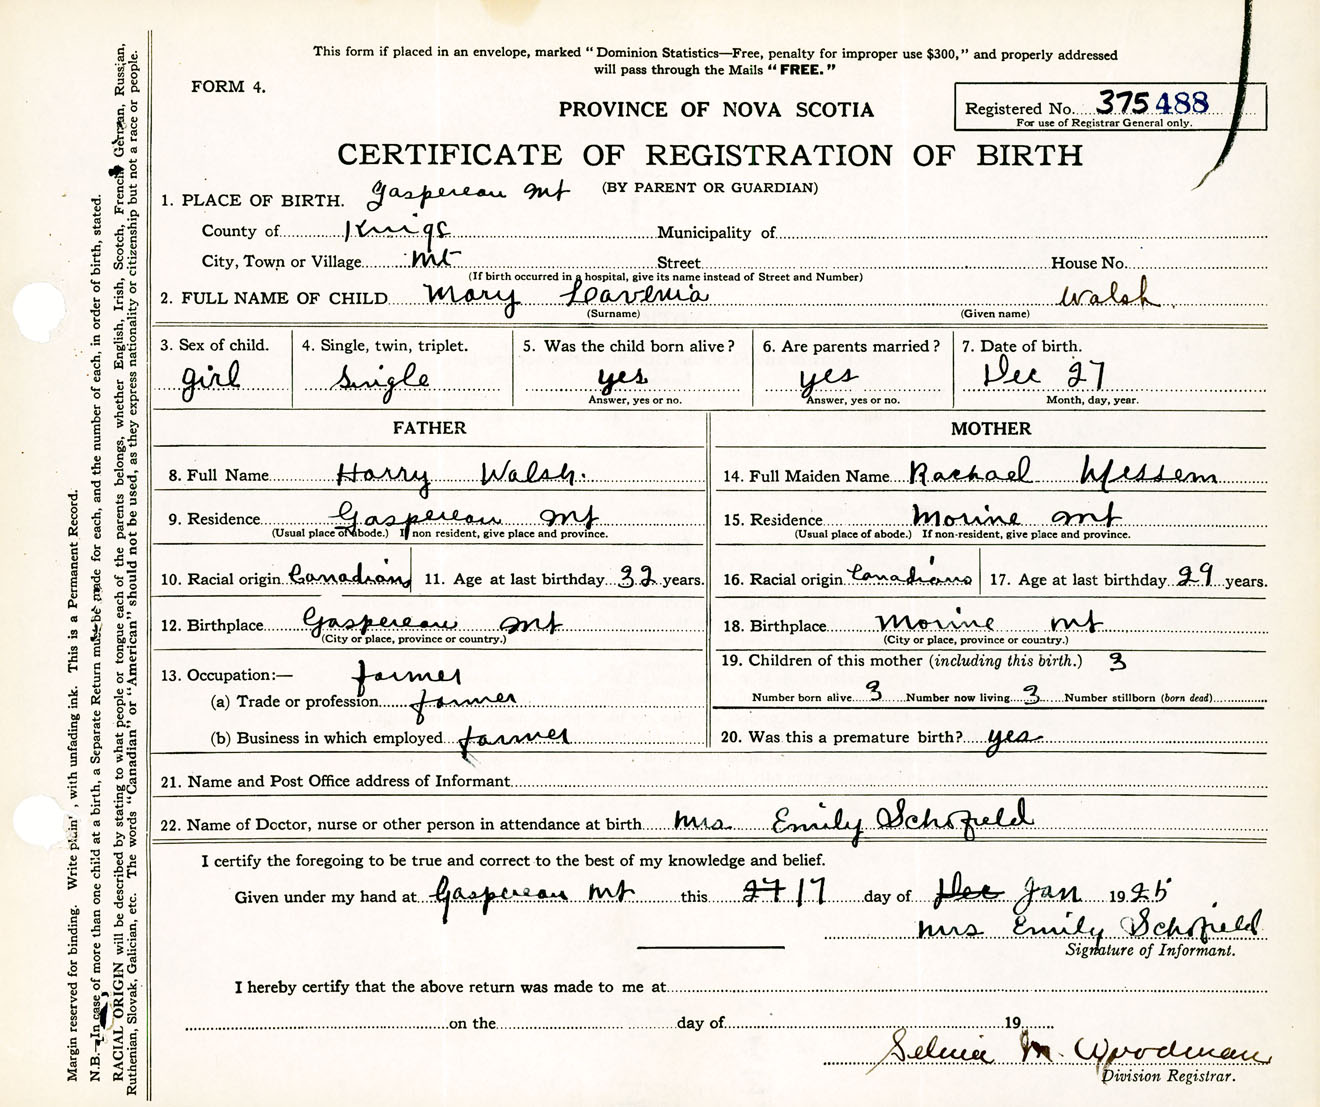 This form if placed in an envelope, marked “Dominion Statistics—Free, penalty for improper use $300,” and properly addressed
will pass through the Mails “FREE.”
FORM 4.
PROVINCE OF NOVA SCOTIA
Registered No. 375488
For use of Registrar General only.
CERTIFICATE OF REGISTRATION OF BIRTH
(BY PARENT OR GUARDIAN)
1. PLACE OF BIRTH. Gaspereau Mt
County of Kings Municipality of
City, Town or Village Mt Street House No.
(If birth occurred in a hospital, give its name instead of Street and Number)
2. FULL NAME OF CHILD Mary Lavenia Walsh
(Surname) (Given name)
3. Sex of child. 4. Single, twin, triplet. 5. Was the child born alive? 6. Are parents married? 7. Date of birth.
girl Single yes yes Dec 27
Answer, yes or no. Answer, yes or no. Month, day, year.
FATHER MOTHER
8. Full Name Harry Walsh. 14. Full Maiden Name Rachael
9. Residence Gaspereau Mt 15. Residence Morine Mt
(Usual place of abode.) If non resident, give place and province. (Usual place of abode.) If non-resident, give place and province.
10. Racial origin Canadian 11. Age at last birthday 32 years. 16. Racial origin Canadians 17. Age at last birthday 29 years.
12. Birthplace Gaspereau Mt 18. Birthplace Morine Mt
(City or place, province or country.) (City or place, province or country.)
13. Occupation:— farmer 19. Children of this mother (including this birth.) 3
(a) Trade or profession farmer Number born alive 3 Number now living 3 Number stillborn (born dead)
(b) Business in which employed farmer 20. Was this a premature birth? yes
21. Name and Post Office address of Informant
22. Name of Doctor, nurse or other person in attendance at birth Mrs Emily Schofield
I certify the foregoing to be true and correct to the best of my knowledge and belief.
Given under my hand at Gaspereau Mt this 27 17 day of Dec Jan 1925
Mrs Emily Schofield
Signature of Informant.
I hereby certify that the above return was made to me at
on the day of 19
Selmie M. Woodman
Division Registrar.
Margin reserved for binding. Write plain , with unfading ink. This is a Permanent Record.
N.B.—In case of more than one child at a birth, a Separate Return must be made for each, and the number of each, in order of birth, stated.
RACIAL ORIGIN will be described by stating to what people or tongue each of the parents belongs, whether English, Irish, Scotch, French, German, Russian,
Ruthenian, Slovak, Galician, etc. The words “Canadian” or “American” should not be used, as they express nationality or citizenship but not a race or people.